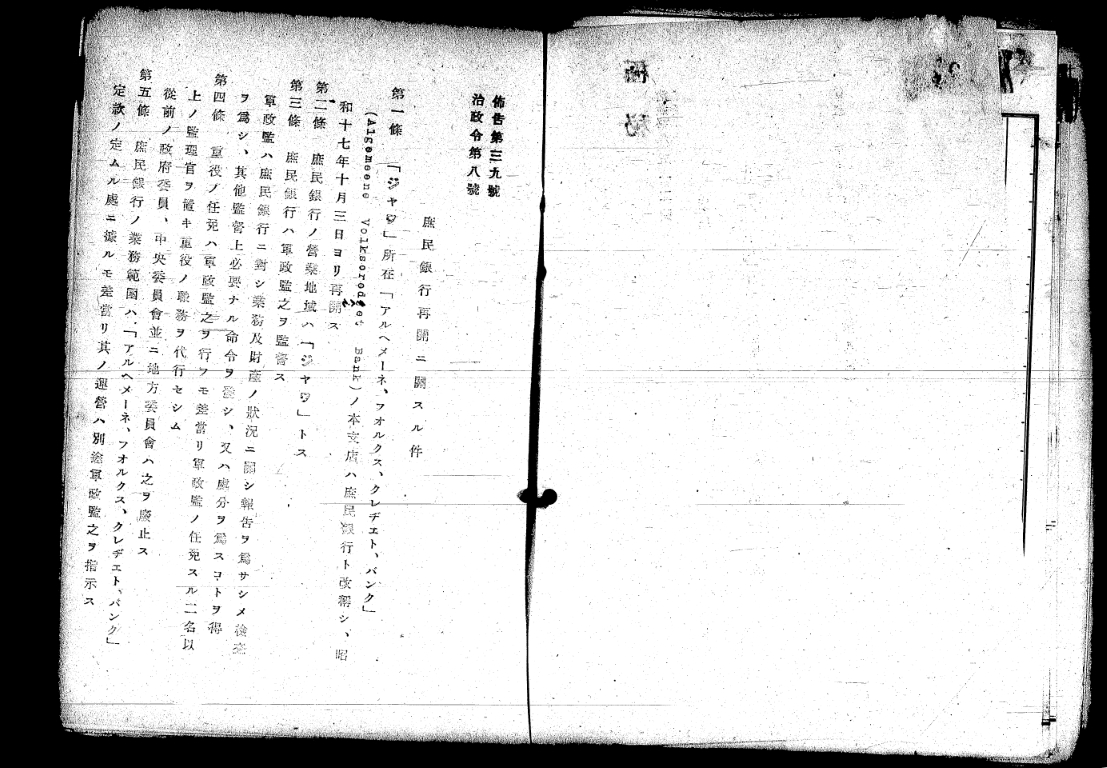 佈告第三九號
治政令第八號
庶民銀行再開ニ關スル件
第一條　「ジャワ」所在「アルヘメーネ、フオルクス、クレヂエト、バンク」
(Algemeene Volkscrediet Bank)ノ本支店ハ庶民銀行ト改稱シ、昭
和十七年十月三日ヨリ再開ス
第二條　庶民銀行ノ營業地域ハ「ジャワ」トス
第三條　庶民銀行ハ軍政監之ヲ監督ス
軍政監ハ庶民銀行ニ對シ業務及財產ノ狀況ニ關シ報告ヲ爲サシメ檢査
ヲ爲シ、其他監督上必要ナル命令ヲ發シ、又ハ處分ヲ爲スコトヲ得
第四條　重役ノ任免ハ軍政監之ヲ行フモ差當リ軍政監ノ任免スル二名以
上ノ監理官ヲ置キ重役ノ職務ヲ代行セシム
從前ノ政府委員、中央委員會並ニ地方委員會ハ之ヲ廢止ス
第五條　庶民銀行ノ業務範圍ハ「アルヘメーネ、フオルクス、クレヂエト、バンク」
定款ノ定ムル處ニ據ルモ差當リ其ノ運營ハ別途軍政監之ヲ指示ス